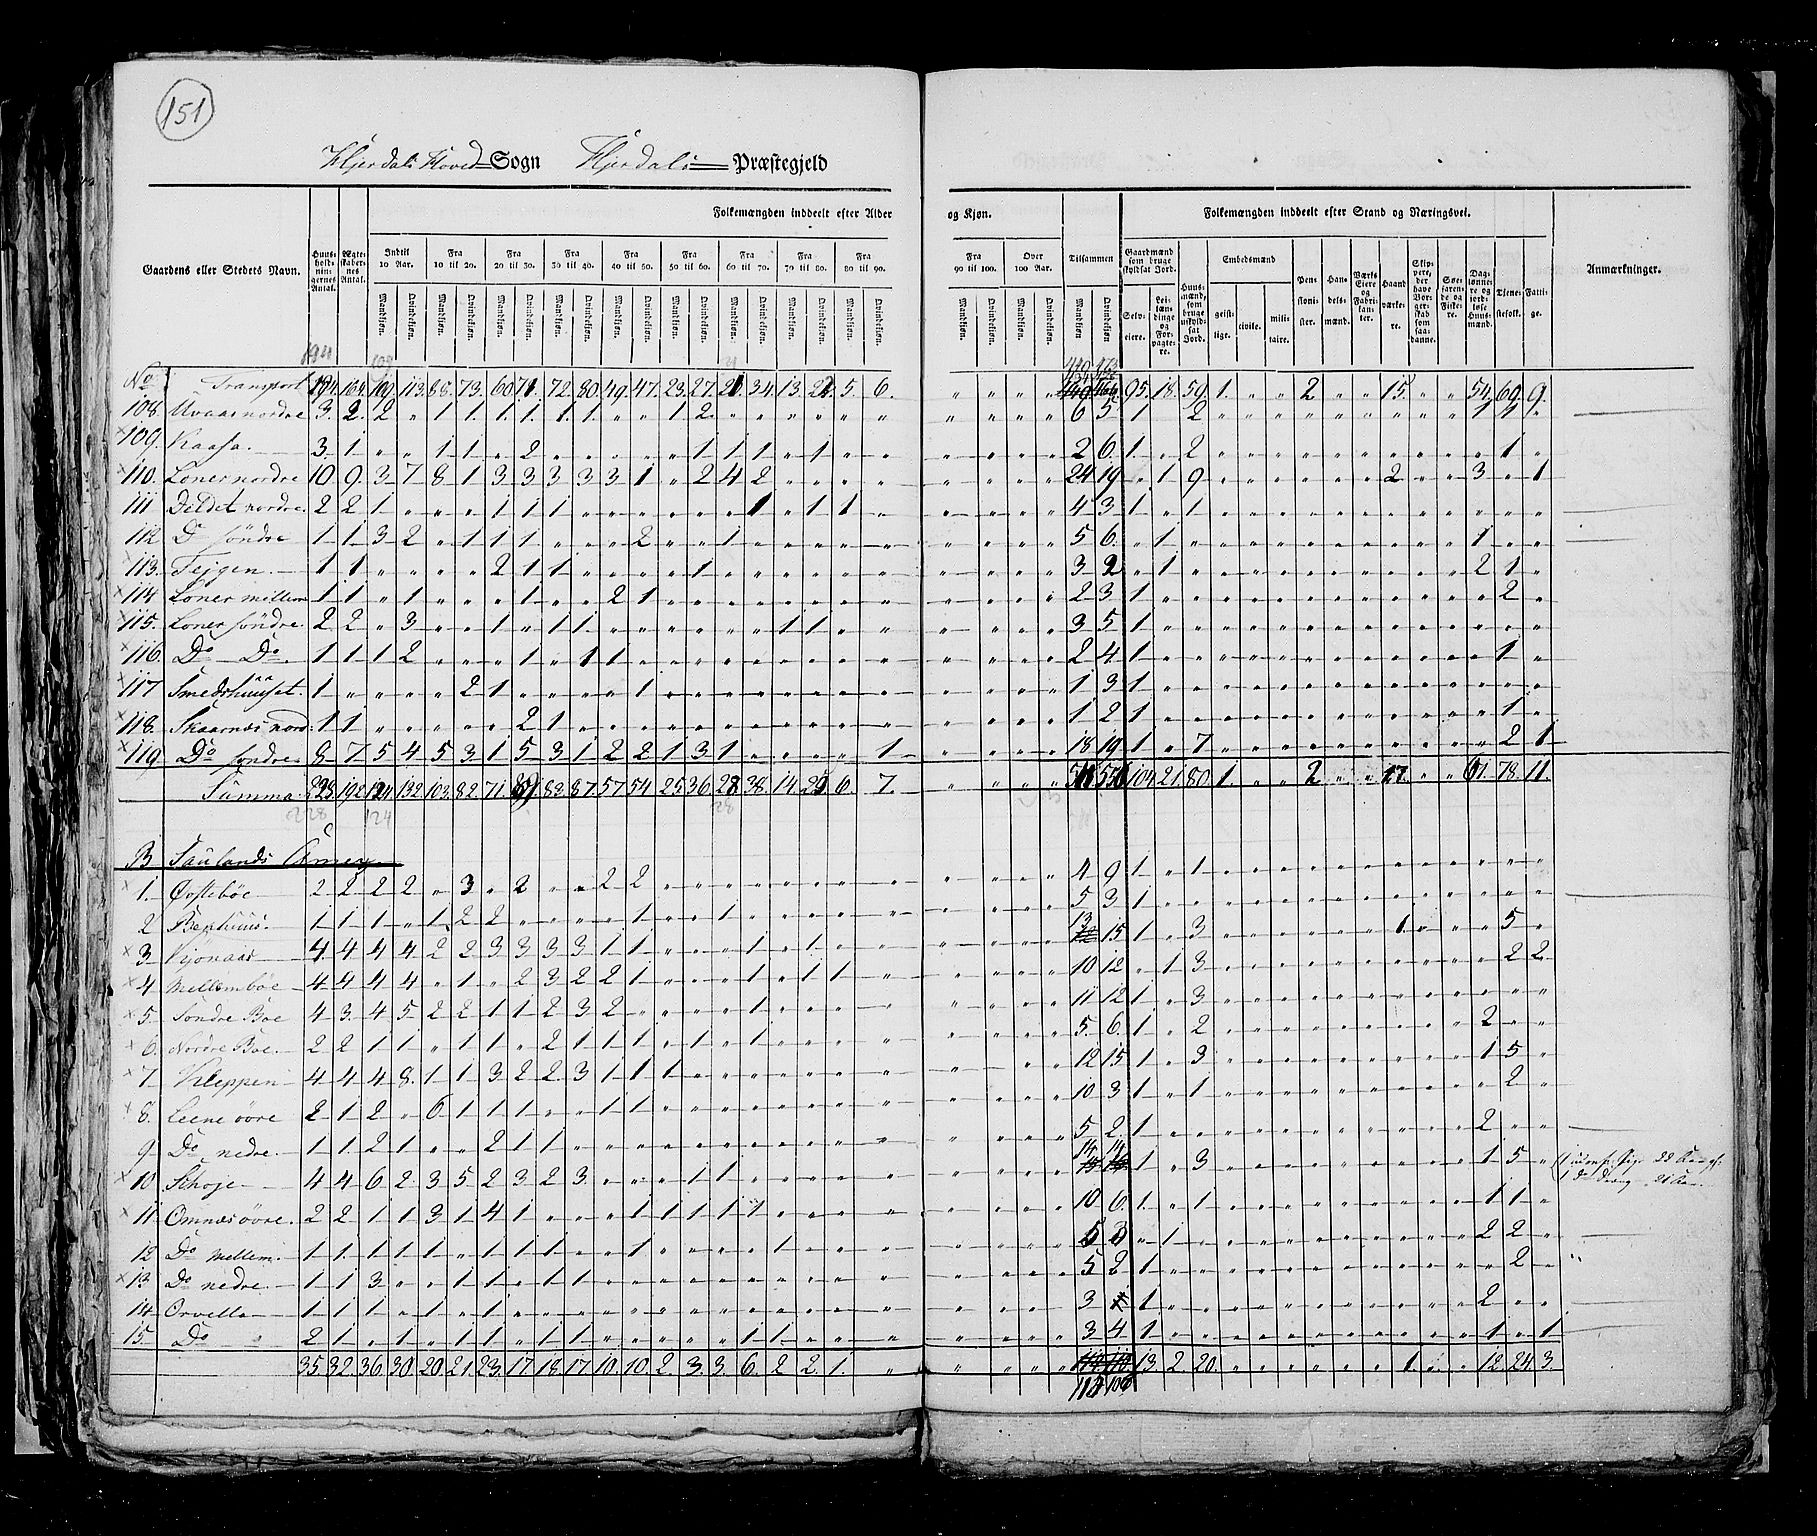 151
Hjerdals Hoved Sogn Hjerdals Præstegjeld
Folkemængden inddeelt efter Alder og Kjøn. Folkemængden inddeelt efter Stand og Næringsvei.
Gaardens eller Stedets Navn. Huus-holdnin-gernes Antal. Ægte-skaber-nes Antal. Indtil 10 Aar. Fra 10 til 20. Fra 20 til 30. Fra 30 til 40. Fra 40 til 50. Fra 50 til 60. Fra 60 til 70. Fra 70 til 80. Fra 80 til 90. Fra 90 til 100. Over 100 Aar. Tilsammen Anmærkninger.
Mandkjøn. Qvindekjøn.
Gaardmænd som bruge skyldsat Jord. Selv-eiere. Lei-læn-dinge og For-pagte-re. Huus-mænd, som bruge uskyld-sat Jord. Embedsmænd geist-lige. civile. mili-taire. Pen-sioni-ster. Han-dels-mænd. Værks Eiere og Fabri-kan-ter. Haand værke-re. Skip-pere, der have Bor-ger-skab som saa-danne. Søe-farende og Fiske-re. Dag-lønne-re og jord-løse Huus-mænd. Tjene-stefolk. Fatti-ge.
194
No Transport 194. 164. 109. 113. 88. 73. 60. 71. 72. 80. 49. 47. 23. 27. 21. 34. 13. 22. 5 6. 95. 18. 59. 1. " " 2 " " 15. " " 54. 69. 9.
108. Uvaas nordre 3. 2. 2 " 1 1. 1. 1. 1. 1. " " 1 2. " " " " " " 6 5. 1 " 2
109. Kaasa 3 1 " " 1 1 " 2 " " " " " 1 1 1 " 1 " " 2 6. 1 " 2 1
110. Loner nordre 10 9. 3 7 8 1 3 3 3 3 3 1 " 2 4 2 " " " " 24 19 " 1 9 2 3 " 1
111 Deldet nordre. 2 2 1 " " " 1 1 1 " " " " " " 1 " 1 1 " 4 3 1 " 1
112 Do søndre 1 1 3 2 " 1 1 1 " " " 2 " " 1 " " " " " 5 6. " 1 1
113. Tejgen. 1 1 " " " " 2 1 1 " " " " 1 " " " " " " 3 2 " 1 2 1
114 Loner mellem 1 1 " 1 " " " 1 " " 2 1 " " " " " " " " 2 3 1 2
115. Loner søndre. 2 2 " 3 " " 1 " 1 1 " " " " " " 1 1 " " 3 5 1
116. Do Do 1 1 1 2 " " " 1 " 1 1 " " " " " " " " " 2 4 1 1
117 Smedshuuset. 1 " " " " 2 1 " " " " 1 " " " " " " " " 1 3 1
118. Skaarnæs nord. 1 1 " " " " " 2 1 " " " " " " " " " " " 1 2 1 1
119. Do søndre 8 7 5 4 5 3 1 5 3 1 2 2 1 3 1 " " " " 1 18 19 1 " 7 2 1
Summa 228 192 124 132 103. 82. 71 89 83 87. 57 54 25 36 28 38. 14 25 6. 7. 104 21 80. 1. " " 2 " " 17. " " 61. 78. 11.
228 124 28
B Saulands Annex
1. Øvstebøe 2 2 2 2 " 3 " 2 " " 2 2 4 9 1 " 1
2 1 1 1 " 1 2 2 " " " " 1 " " 1 5 3 1
3 4 4 4 4 2 2 3 3 3 3 1 1 " " " 1 " 1 13 15 1 " 3 1 5
4 Mellembøe 4 4 4 4 " 1 " 2 3 2 2 1 " " " 1 " 1 1 10 12 " 1 3 2 2
5. Søndre Bøe 4 3 4 5 2 2 1 1 2 3 2 " " " " 1 11 12 1 " 3
6. Nordre Bøe. 2 2 1 1 " 1 1 " 2 1 1 1 " 1 " 1 5 6. 1 " 2 2
7 Kleppen 4 4 4 8. 1 1 3 2 2 3 1 1 1 12 15 1 " 3 1 5
8. Leene øvre 2 1 2 " 6 1 1 1 " " 1 1 10 3 1 " 1 2
9 Do nedre. 1 1 2 1 " " 2 1 1 5 2 1 2
10 Skoje 4 4 6 2 3 5 2 3 2 3 " " " 1 1 14 14 1 " 3 1 5
11 Omnæs øvre. 2 2 1 1 3 1 4 1 " " " 1 1 1 1 1 10 6. 1 " 1 1 1
12 Do Mellem. 1 1 1 1 1 " 1 1 1 " " 1 " " " " 1 5 3 " 1 2 2
13 Do nedre 1 1 3 " " 1 1 " 1 1 5 2 1 2
14 Orvella 1 1 1 " 1 " 1 3 1 2
15. Do 2 1 " 1 " 1 1 " 1 1 " " " " " 1 1 3 4 1 1 " 1
35. 32. 36. 30. 20. 21. 23. 17. 18. 17. 10. 10. 2. 3. 3. 6. 2 2. 1. " 13. 2. 20. 1 12. 24. 3.